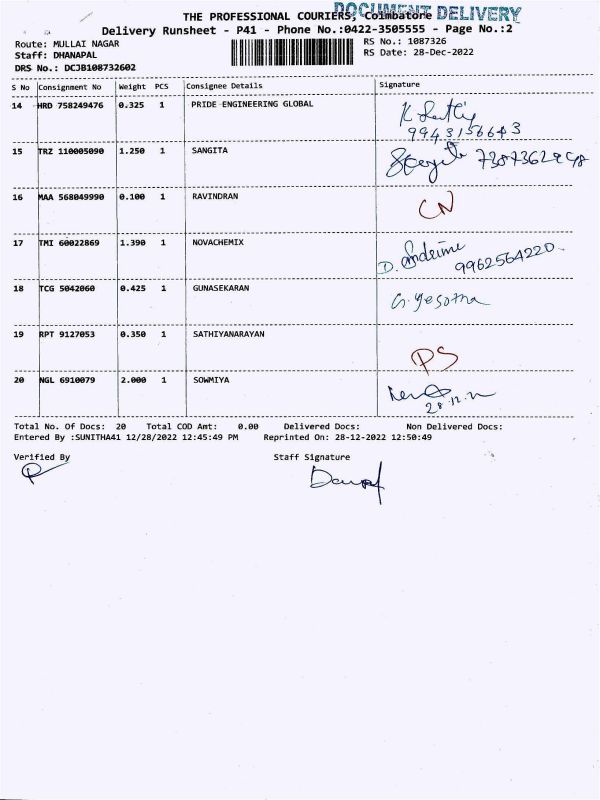 DOCUMENT DELIVERY
THE PROFESSIONAL COURIERS, Coimbatore
Delivery Runsheet - P41 - Phone No.:0422-3505555 - Page No.:2
Route: MULLAI NAGAR RS No.: 1087326
Staff: DHANAPAL RS Date: 28-Dec-2022
DRS No.: DCJB108732602
S No Consignment No Weight PCS Consignee Details Signature
14 HRD 758249476 0.325 1 PRIDE ENGINEERING GLOBAL
9943156643
15 TRZ 110005090 1.250 1 SANGITA
16 MAA 568049990 0.100 1 RAVINDRAN CN
17 TMI 60022869 1.390 1 NOVACHEMIX D.
9962564220
18 TCG 5042060 0.425 1 GUNASEKARAN G. Yesotha
19 RPT 9127053 0.350 1 SATHIYANARAYAN PS
20 NGL 6910079 2.000 1 SOWMIYA
28.12.22
Total No. Of Docs: 20 Total COD Amt: 0.00 Delivered Docs: Non Delivered Docs:
Entered By :SUNITHA41 12/28/2022 12:45:49 PM Reprinted On: 28-12-2022 12:50:49
Verified By Staff Signature